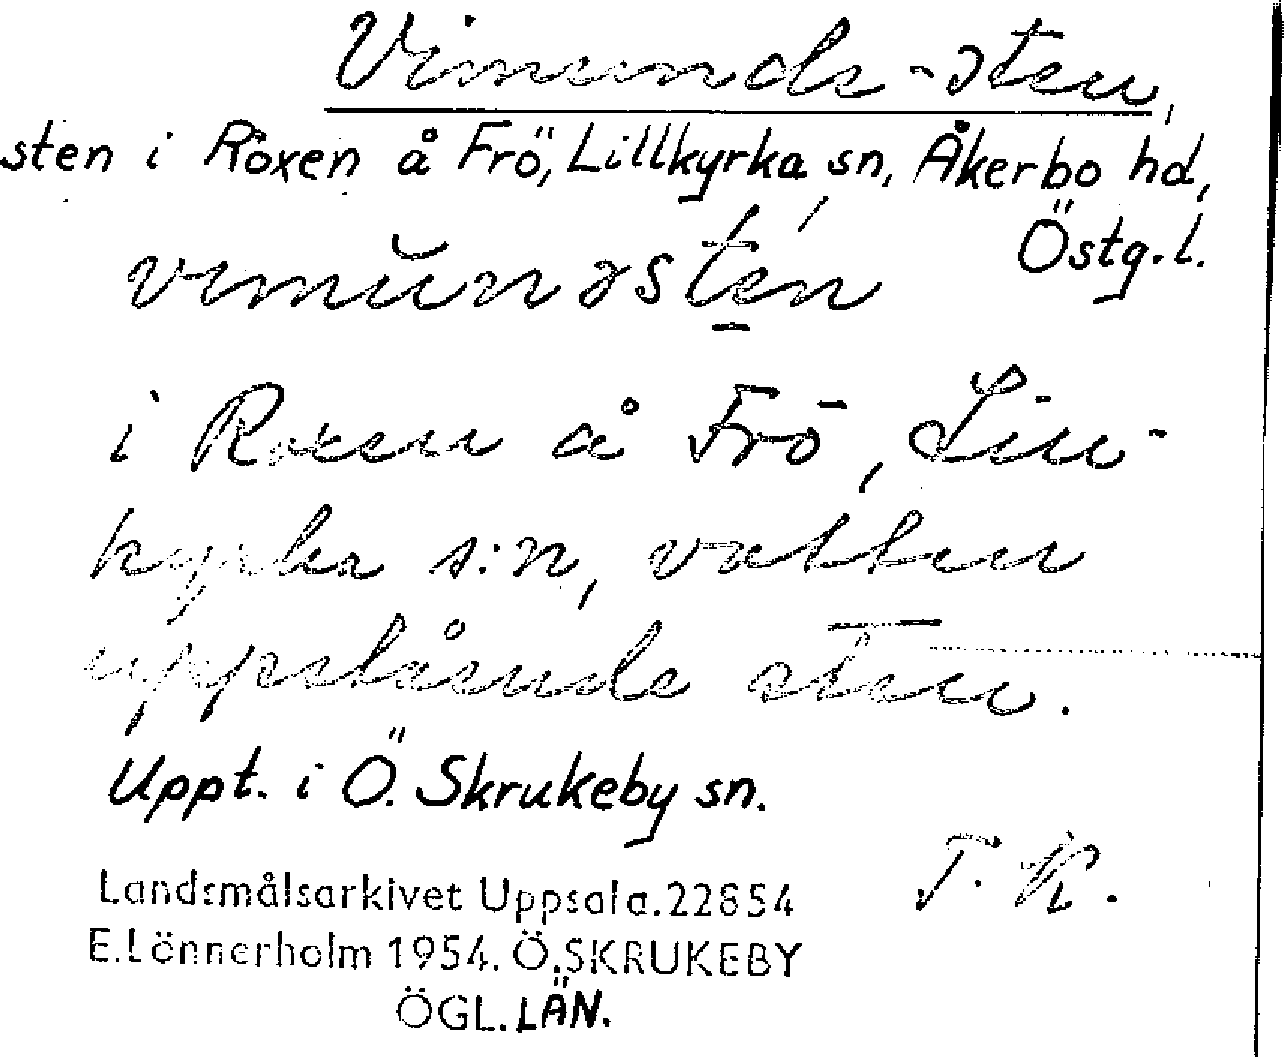 Vimunds-sten,
sten i Roxen å Frö, Lillkyrka sn, Åkerbo hd,
Östg. l.
i Roxen å Frö, Lill-
kyrka s:n, vatten
uppstående sten.
Uppt. i Ö. Skrukeby sn.
T. K.
Landsmålsarkivet Uppsala. 22854
E. Lönnerholm 1954. Ö. SKRUKEBY
ÖGL. LÄN.